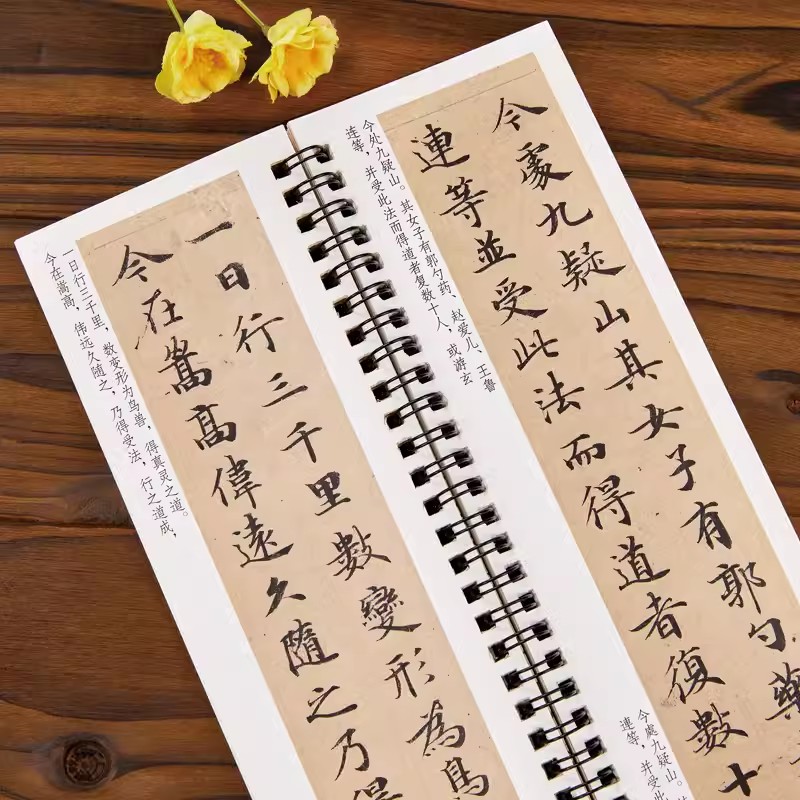 今處九疑山其女子有郭勺藥
連等並受此法而得道者復數十
今处九疑山。其女子有郭勺药、赵爱儿、王鲁
连等，并受此法而得道者复数十人，或游玄
今處九疑山。
連等，并受此
一日行三千里數變形為鳥
今在嵩高偉遠久隨之乃得
一日行三千里，数变形为鸟兽，得真灵之道。
今在嵩高，伟远久随之，乃得受法，行之道成，